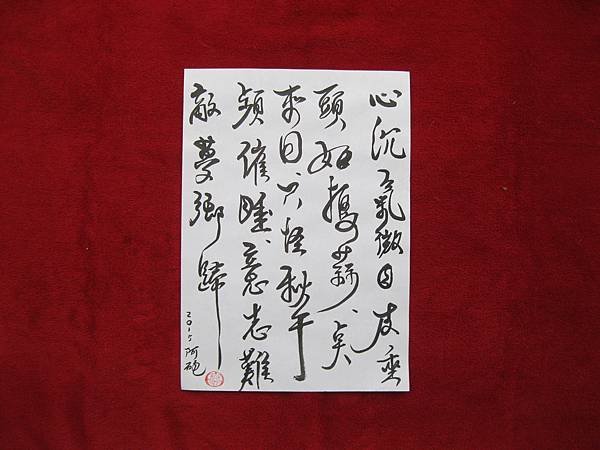 心沉氣微目皮垂
頭如搗蒜点
來回只怪秋午
頻催睡意志難
敵夢鄉歸
2015 阿砲